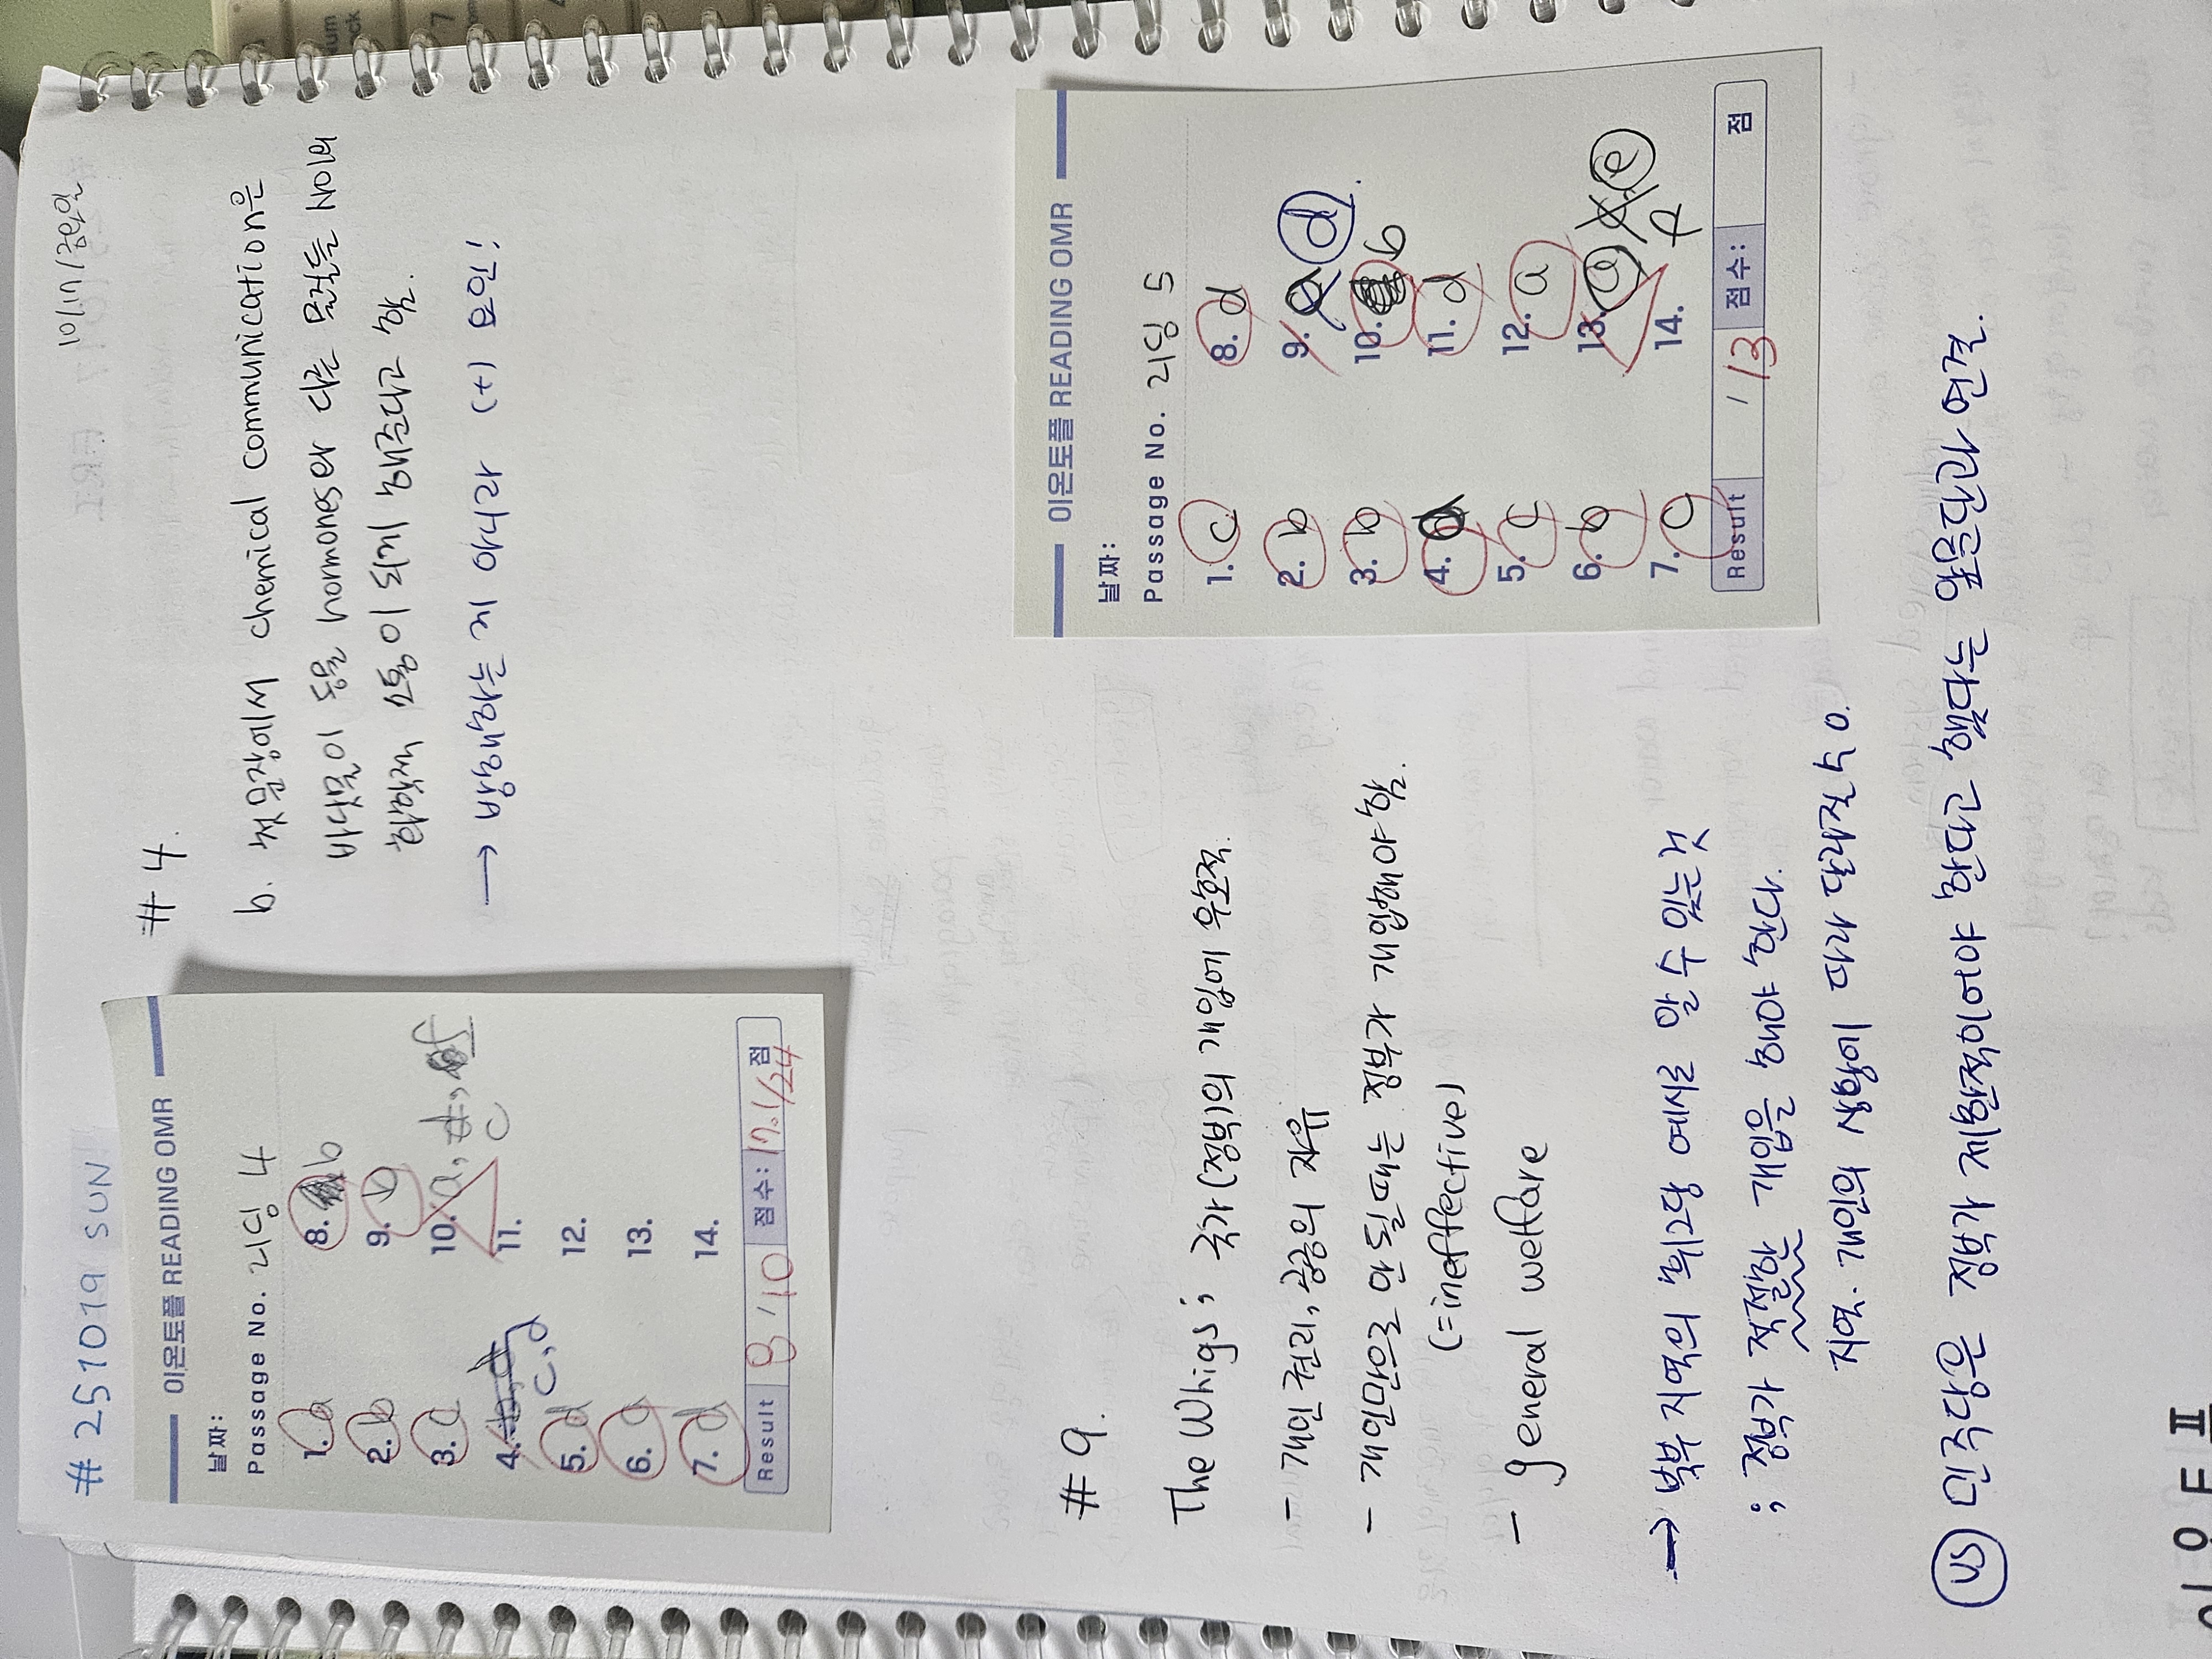 # 251019 SUN
10/17/금요일
이온토플 READING OMR
날짜:
Passage No. 리딩 4
1. a
2. b
3. c
4. c, d
5. d
6. a
7. d
8. b
9. b
10. a, c, f
11.
12.
13.
14.
Result 8/10 점수: 17.1/24 점
# 4.
b. 첫문장에서 chemical communication은
바닷물이 동물 hormones와 다른 물질들 사이의
화학적 소통이 되게 해준다고 함.
→ 방해하는 게 아니라 (+) 요인!
# 9.
The Whigs ; 국가(정부)의 개입에 우호적.
- 개인 권리, 공공의 자유
- 개인만으로 안 될 때는 정부가 개입해야 함.
(=ineffective)
- general welfare
→ 북부 지역의 휘그당 예시로 알 수 있는 것
; 정부가 적절한 개입을 해야 한다.
지역. 개인의 상황이 따라 달라질 수 O.
VS 민주당은 정부가 제한적이어야 한다고 했다는 앞문단과 연결.
이온토플 READING OMR
날짜:
Passage No. 리딩 5
1. c
2. b
3. b
4. a
5. c
6. b
7. a
8. d
9. a d
10. b
11. d
12. a
13. a e
14.
Result /13 점수: 점